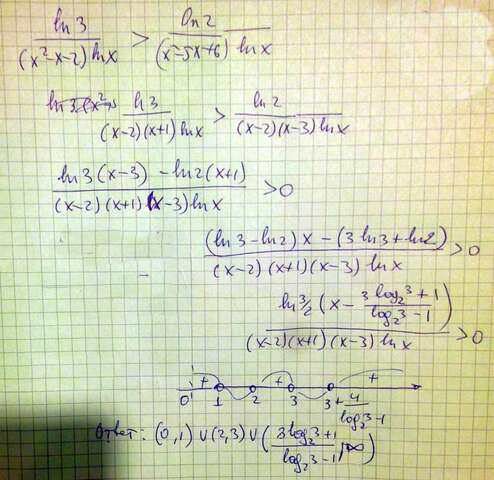 ln 3 / (x²-x-2) ln x > ln 2 / (x²-5x+6) ln x
ln 3 / (x-2)(x+1) ln x > ln 2 / (x-2)(x-3) ln x
ln 3 (x-3) - ln 2 (x+1) / (x-2)(x+1)(x-3) ln x > 0
(ln 3 - ln 2) x - (3 ln 3 + ln 2) / (x-2)(x+1)(x-3) ln x > 0
ln 3/2 (x - 3 log₂3 + 1 / log₂3 - 1) / (x-2)(x+1)(x-3) ln x > 0
+ + +
0 1 2 3 3 + 4 / log₂3 - 1
Ответ: (0,1) ∪ (2,3) ∪ (3 log₂3 + 1 / log₂3 - 1, ∞)